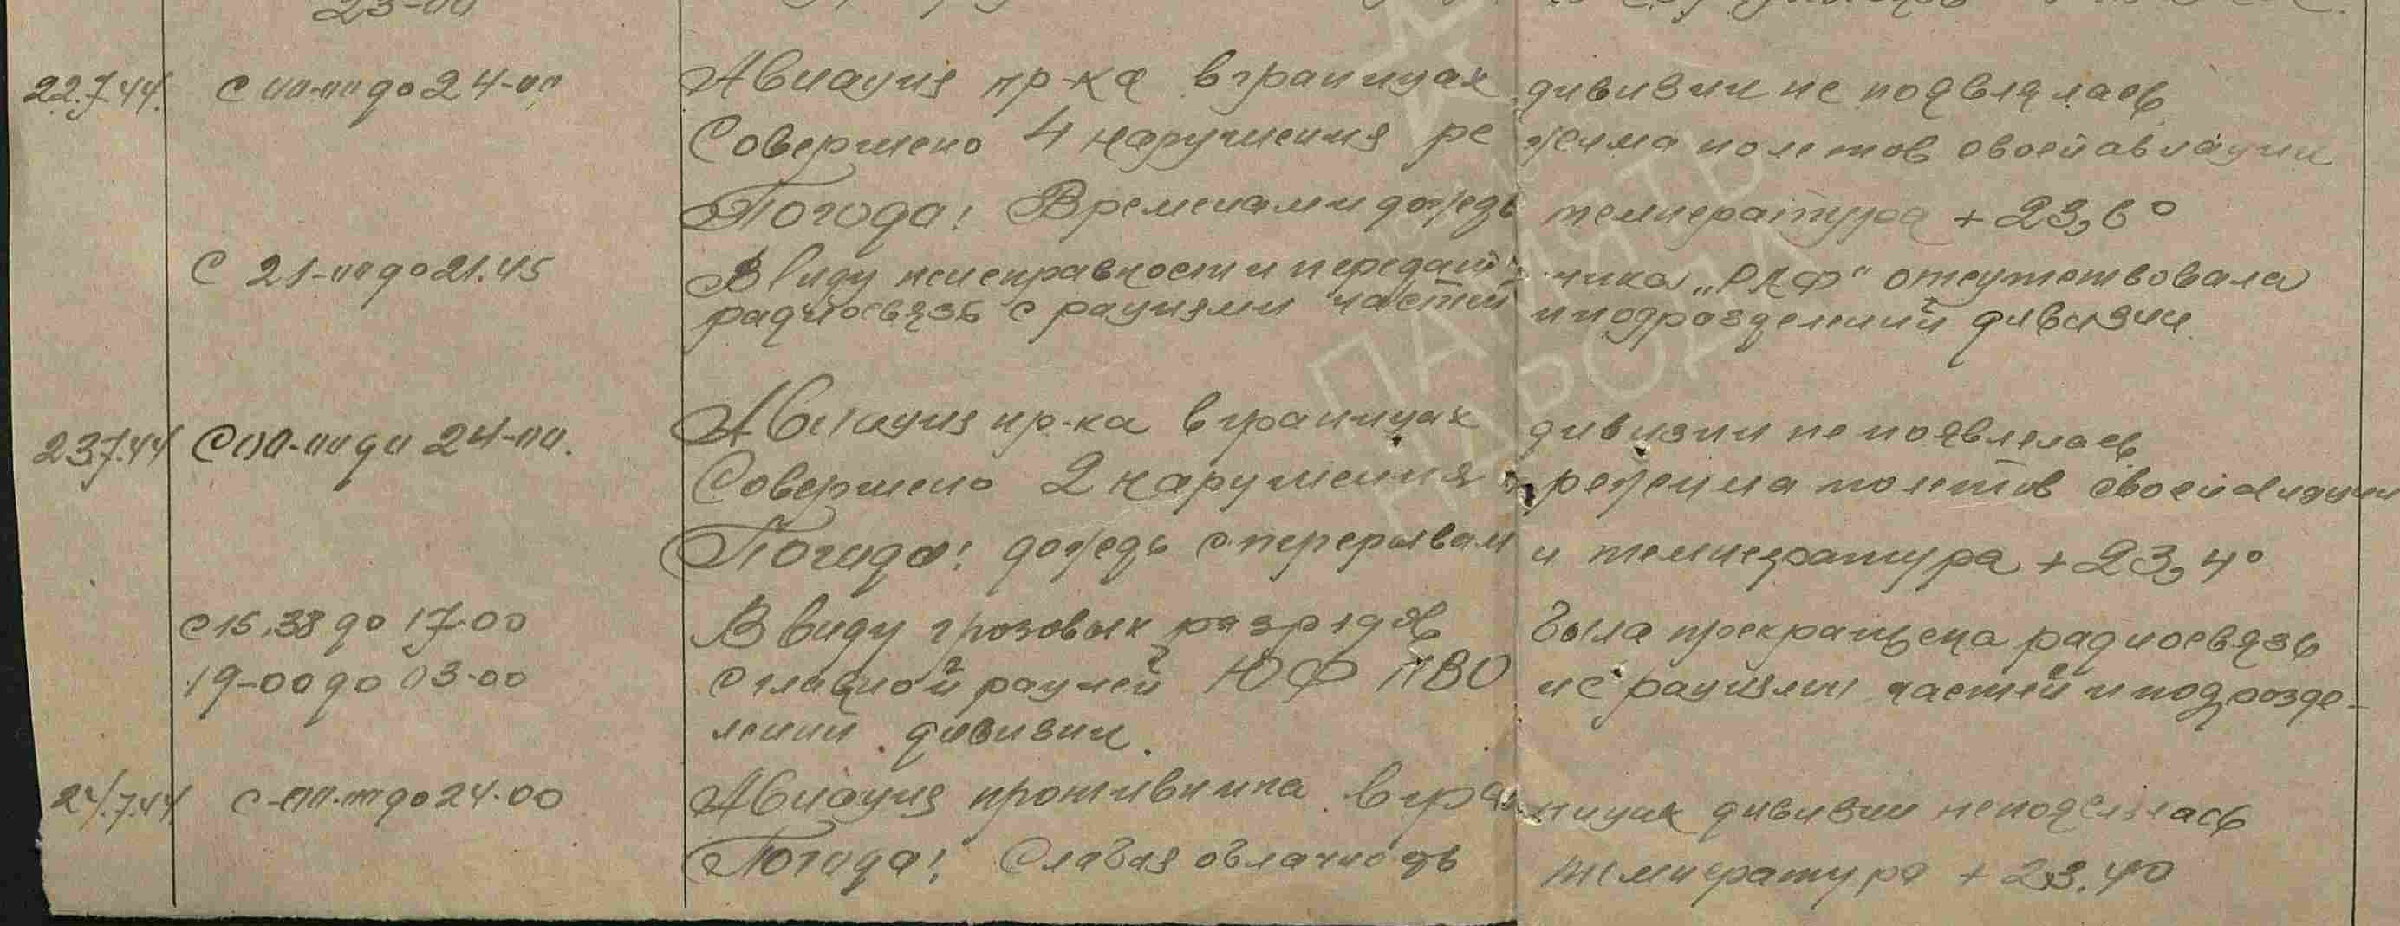 23-00
22.7.44. С 00-00 до 24-00 Авиация пр-ка в границах дивизии не появлялась
Совершено 4 нарушения режима полетов своей авиации
Погода! Временами дождь температура + 23,6°
С 21-00 до 21.45 Ввиду неисправности передатчика „РАФ" отсутствовала
радиосвязь с рациями частей и подразделений дивизии.
23.7.44 С 00-00 до 24-00. Авиация пр-ка в границах дивизии не появлелась
Совершено 2 нарушения режима полетов своей авиации
Погода! дождь с перерывами температура + 23,4°
С 15.38 до 17-00 Ввиду грозовых разрядов была прекращена радиосвязь
19-00 до 03-00 с главной рацией ЮФ ПВО и с рациями частей и подразде-
лений дивизии.
24.7.44 С-00-00 до 24-00 Авиация противника в границах дивизии не появлялась
Погода! Слабая облачность температура + 23.4°
ПАМЯТЬ
НАРОДА